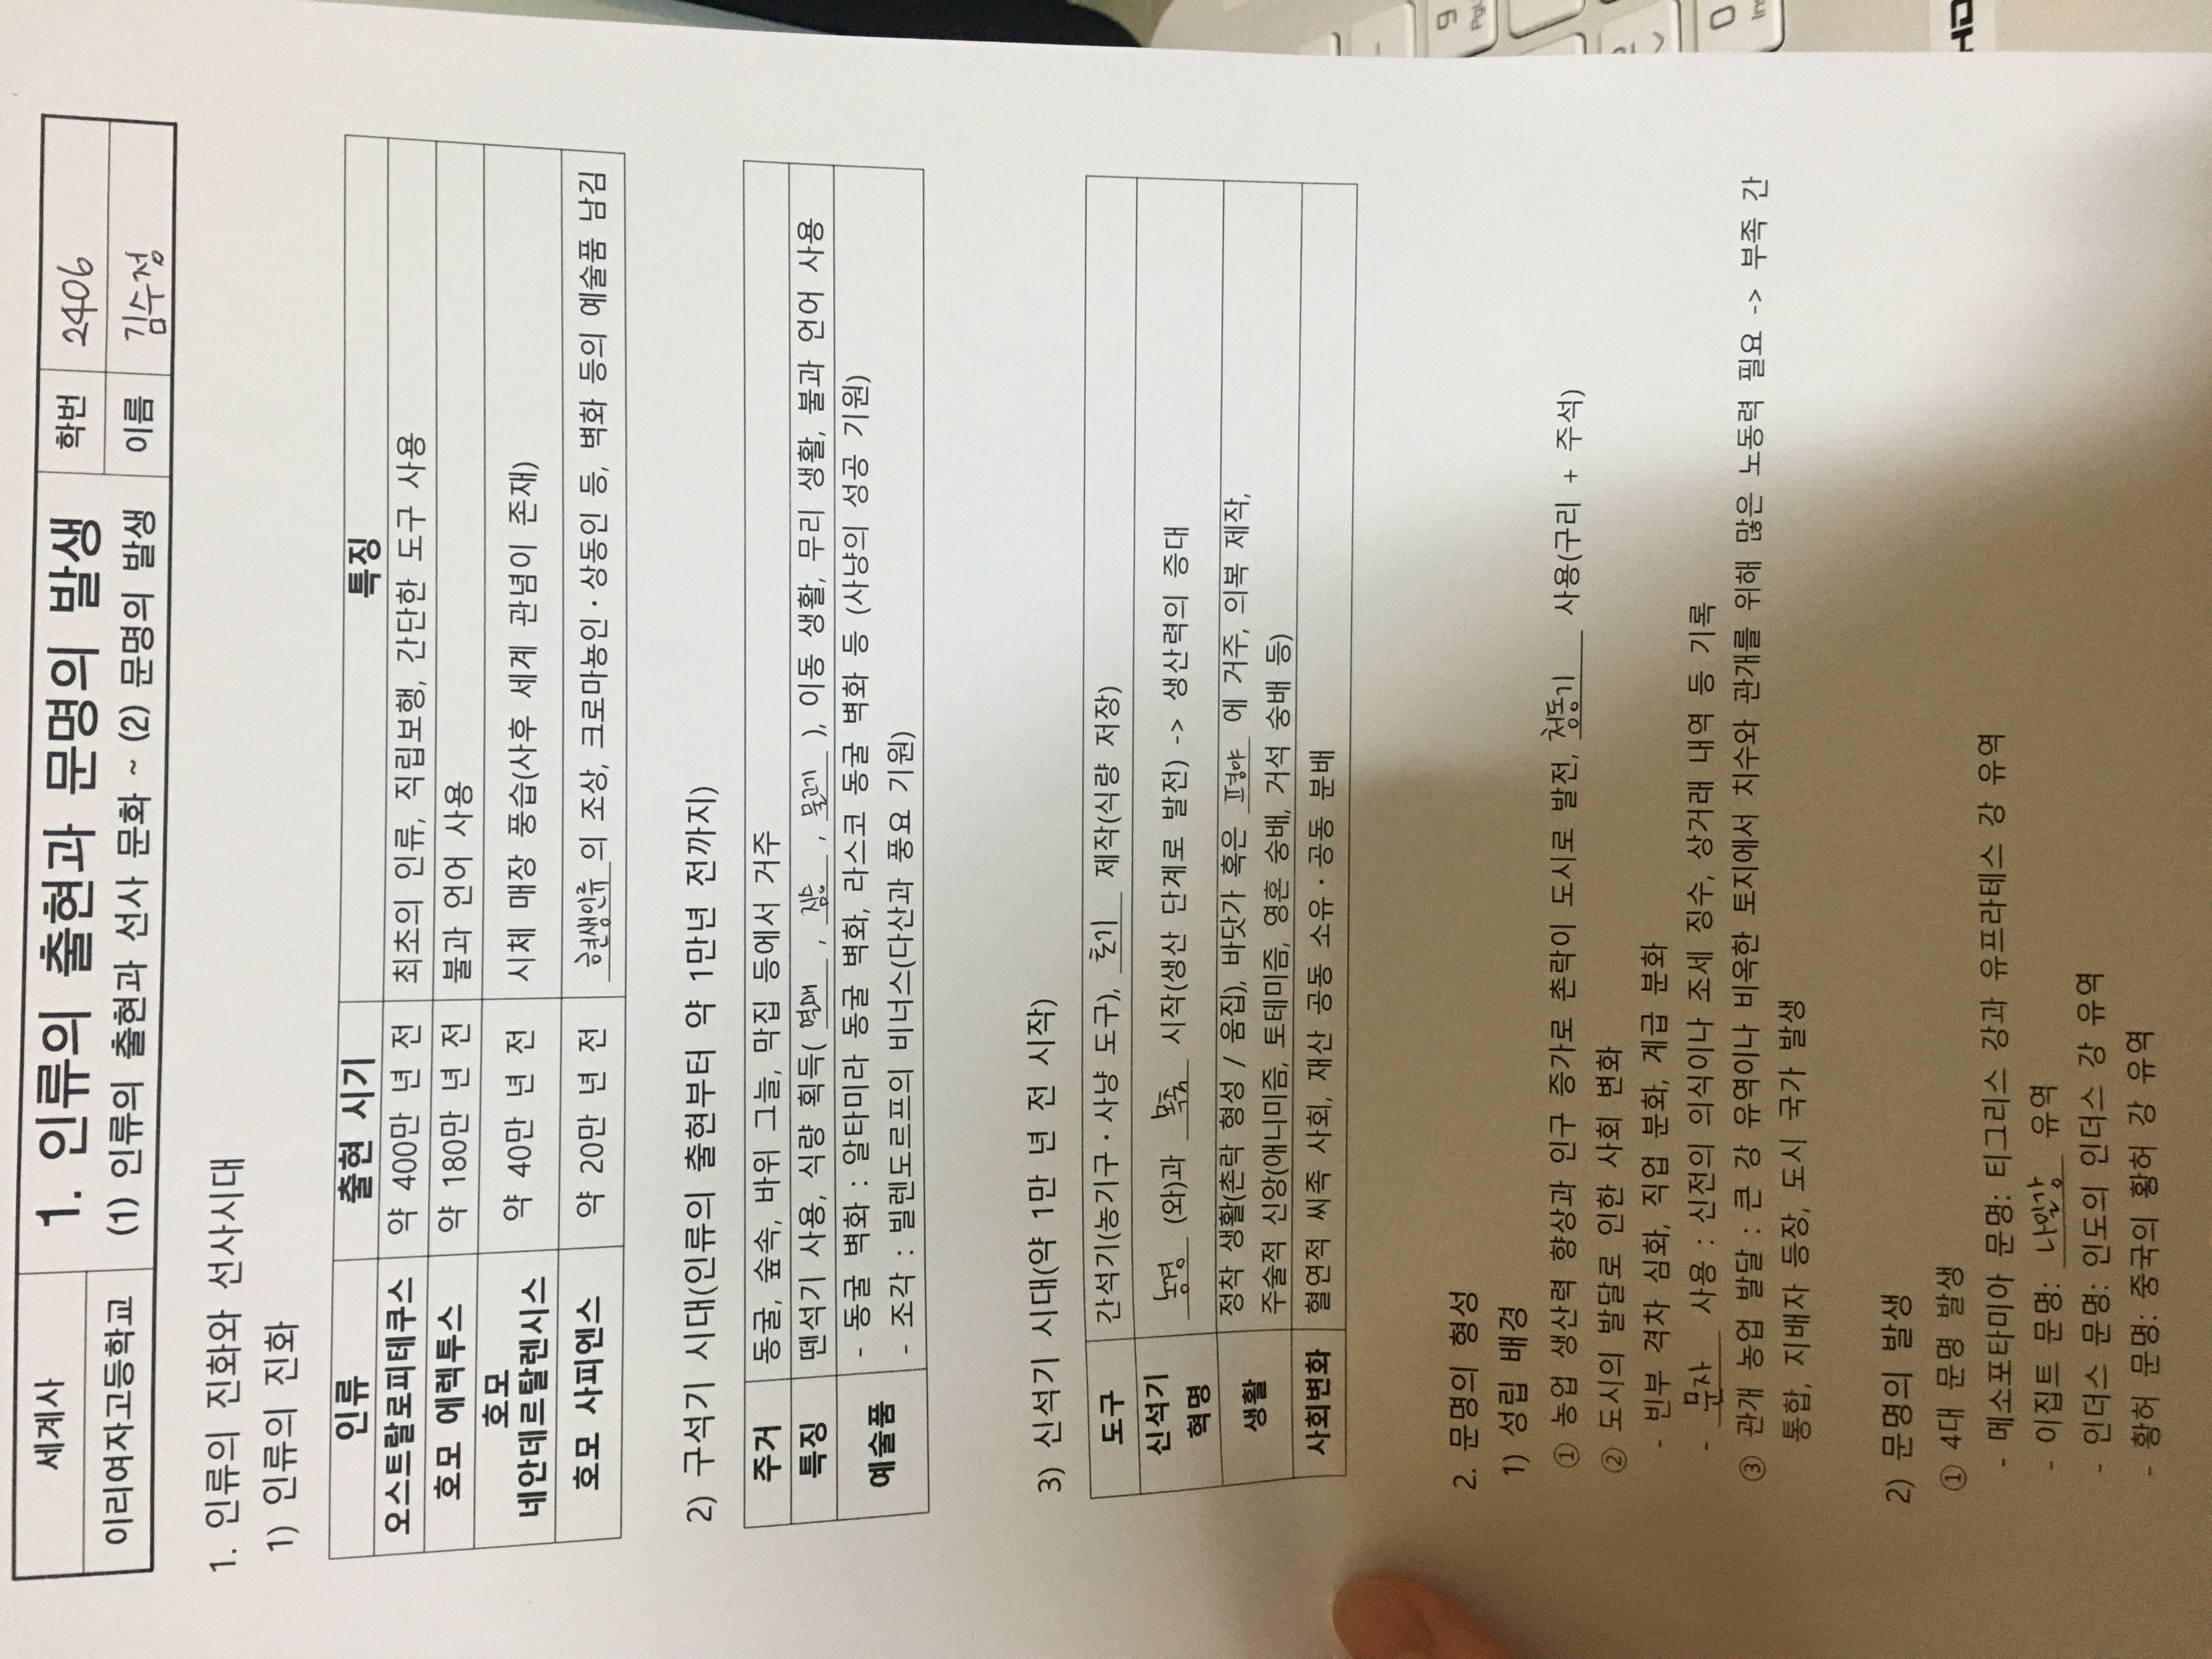 세계사
이리여자고등학교
1. 인류의 출현과 문명의 발생
(1) 인류의 출현과 선사 문화 ~ (2) 문명의 발생
학번 2406
이름 김수정
1. 인류의 진화와 선사시대
1) 인류의 진화
인류 출현 시기 특징
오스트랄로피테쿠스 약 400만 년 전 최초의 인류, 직립보행, 간단한 도구 사용
호모 에렉투스 약 180만 년 전 불과 언어 사용
호모
네안데르탈렌시스 약 40만 년 전 시체 매장 풍습(사후 세계 관념이 존재)
호모 사피엔스 약 20만 년 전 현생인류의 조상, 크로마뇽인·상동인 등, 벽화 등의 예술품 남김
2) 구석기 시대(인류의 출현부터 약 1만년 전까지)
주거 동굴, 숲속, 바위 그늘, 막집 등에서 거주
특징 뗀석기 사용, 식량 획득( 열매 , 짐승 , 물고기 ), 이동 생활, 무리 생활, 불과 언어 사용
예술품
- 동굴 벽화 : 알타미라 동굴 벽화, 라스코 동굴 벽화 등 (사냥의 성공 기원)
- 조각 : 빌렌도르프의 비너스(다산과 풍요 기원)
3) 신석기 시대(약 1만 년 전 시작)
도구 간석기(농기구·사냥 도구), 토기 제작(식량 저장)
신석기
혁명 농경 (와)과 목축 시작(생산 단계로 발전) -> 생산력의 증대
생활 정착 생활(촌락 형성 / 움집), 바닷가 혹은 평야 에 거주, 의복 제작,
주술적 신앙(애니미즘, 토테미즘, 영혼 숭배, 거석 숭배 등)
사회변화 혈연적 씨족 사회, 재산 공동 소유·공동 분배
2. 문명의 형성
1) 성립 배경
① 농업 생산력 향상과 인구 증가로 촌락이 도시로 발전, 청동기 사용(구리 + 주석)
② 도시의 발달로 인한 사회 변화
- 빈부 격차 심화, 직업 분화, 계급 분화
- 문자 사용 : 신전의 의식이나 조세 징수, 상거래 내역 등 기록
③ 관개 농업 발달 : 큰 강 유역이나 비옥한 토지에서 치수와 관개를 위해 많은 노동력 필요 -> 부족 간
통합, 지배자 등장, 도시 국가 발생
2) 문명의 발생
① 4대 문명 발생
- 메소포타미아 문명: 티그리스 강과 유프라테스 강 유역
- 이집트 문명: 나일강 유역
- 인더스 문명: 인도의 인더스 강 유역
- 황허 문명: 중국의 황허 강 유역
9
0